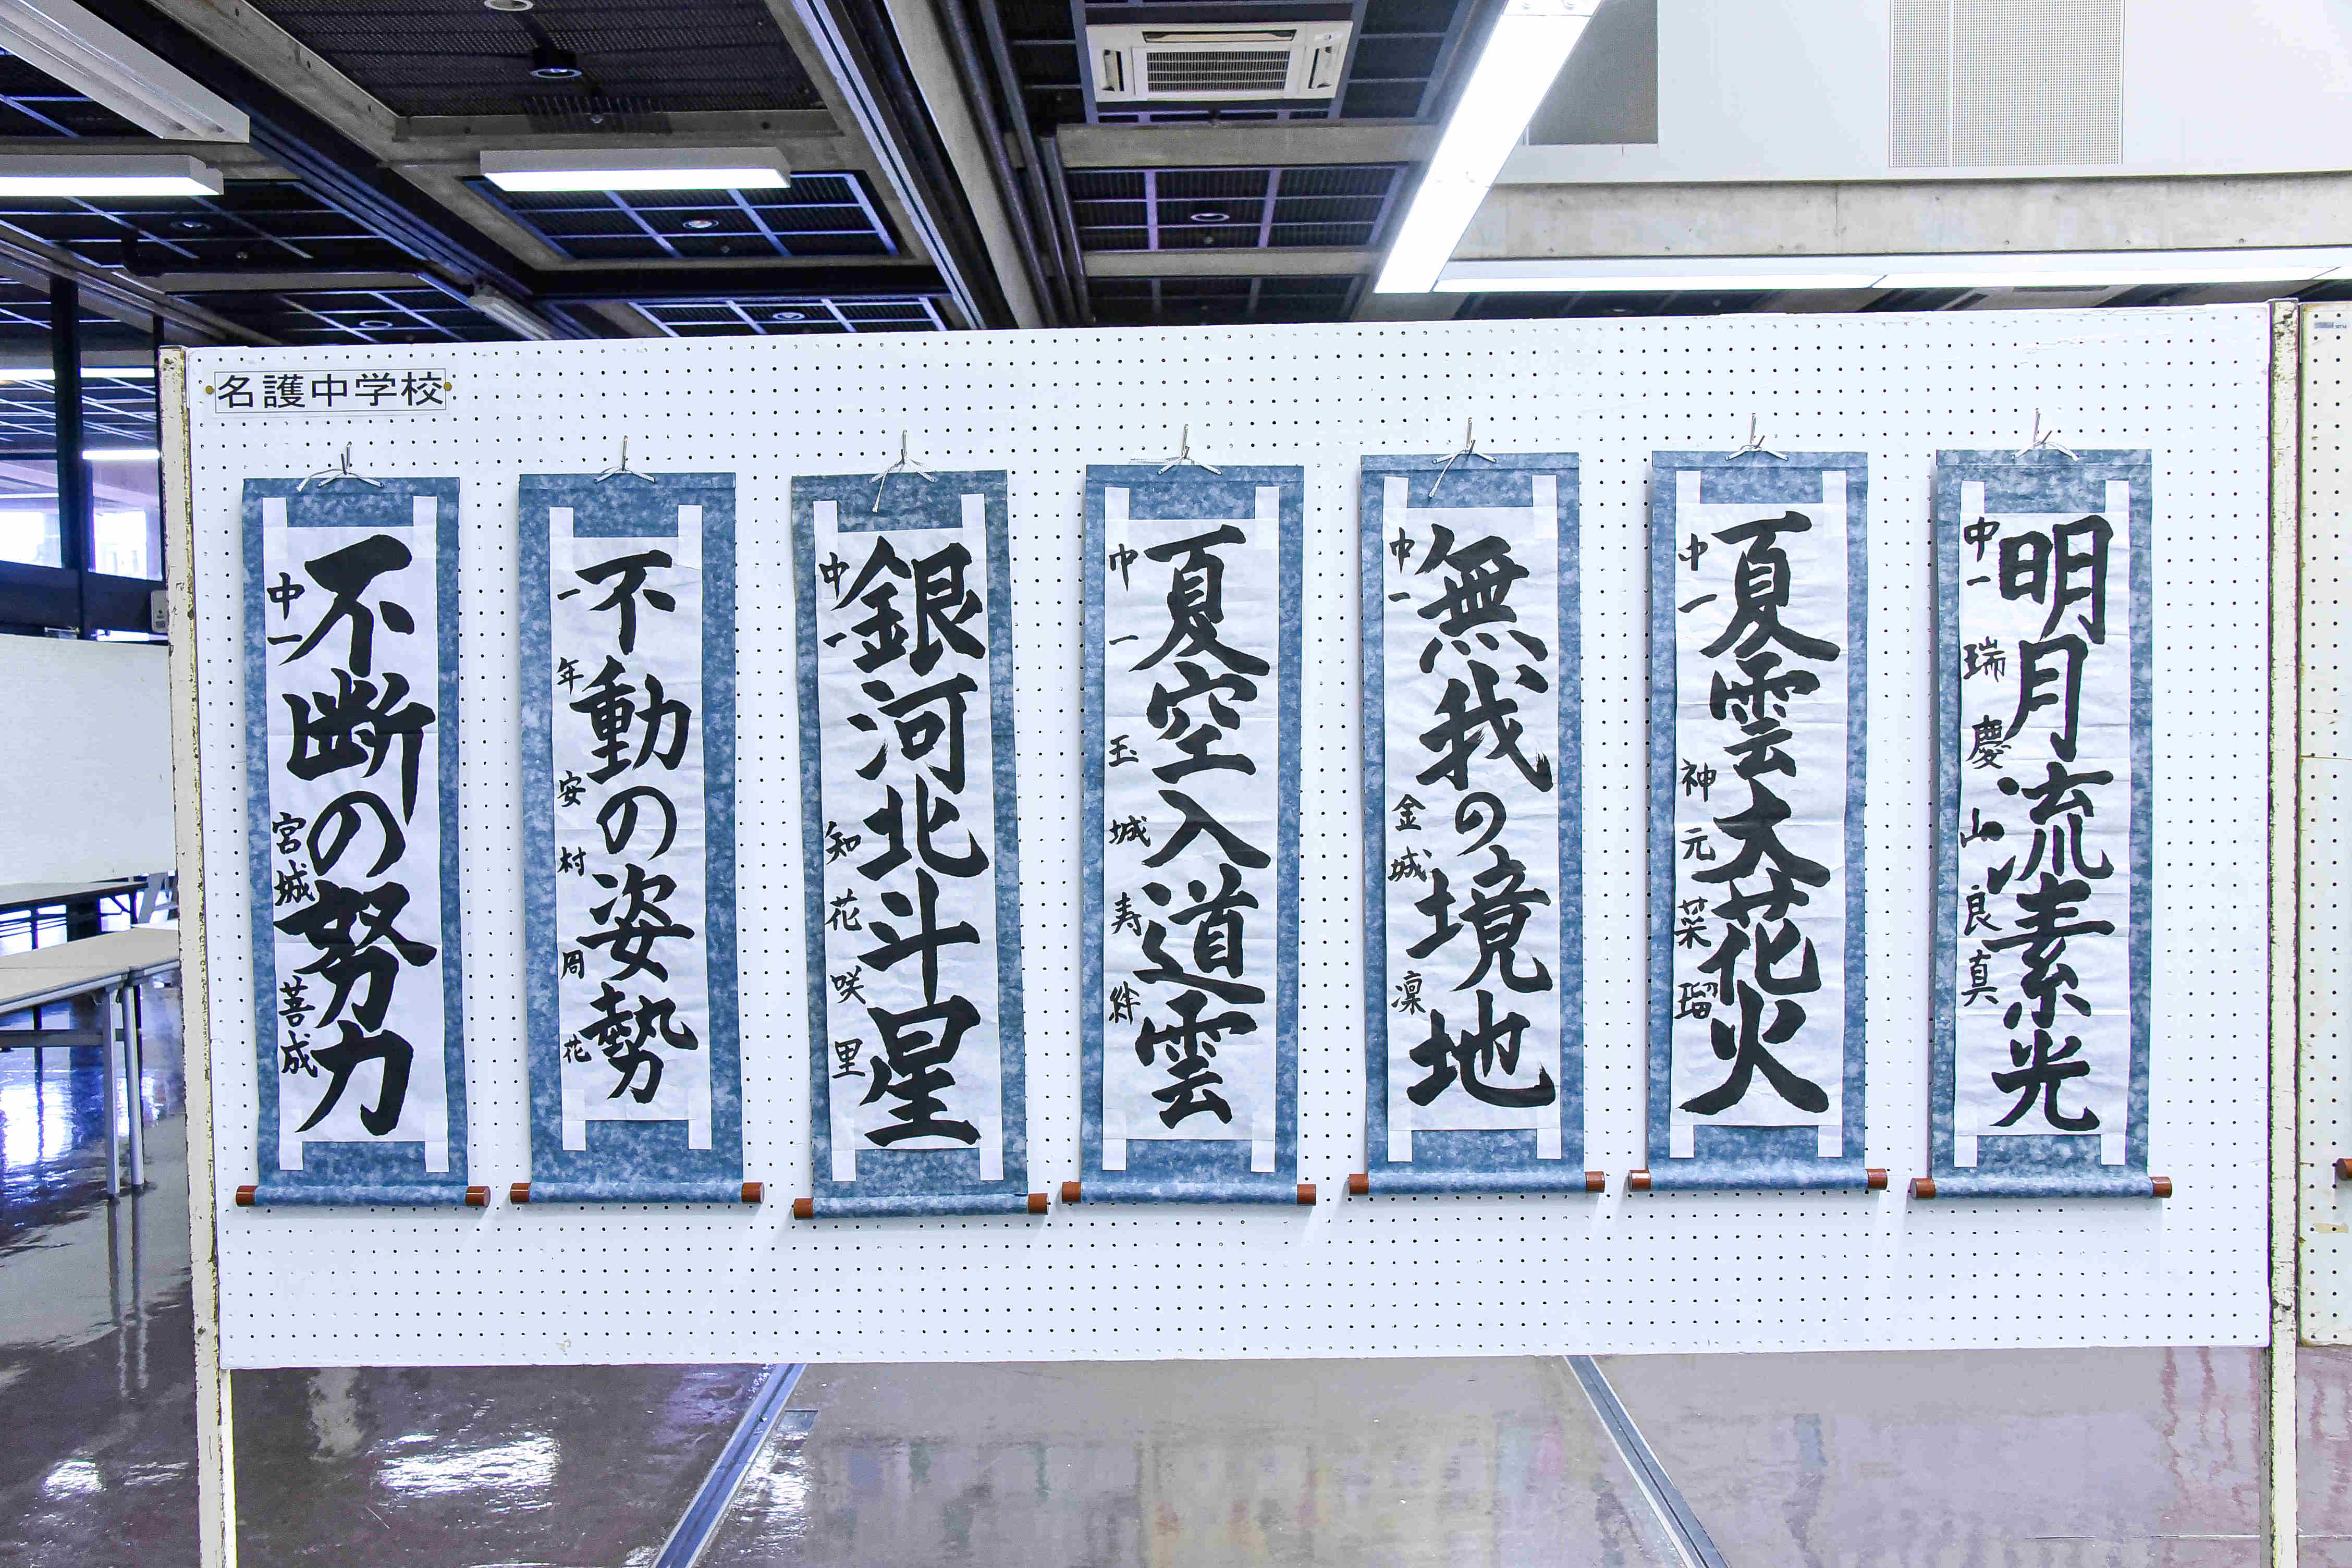 名護中学校
不断の努力
中一 宮城 菩成
不動の姿勢
一年 安村 周花
銀河北斗星
中一 知花 咲里
夏空入道雲
中一 玉城 寿絆
無我の境地
中一 金城 凛
夏雲大花火
中一 神元 菜瑠
明月流素光
中一 瑞慶山 良真